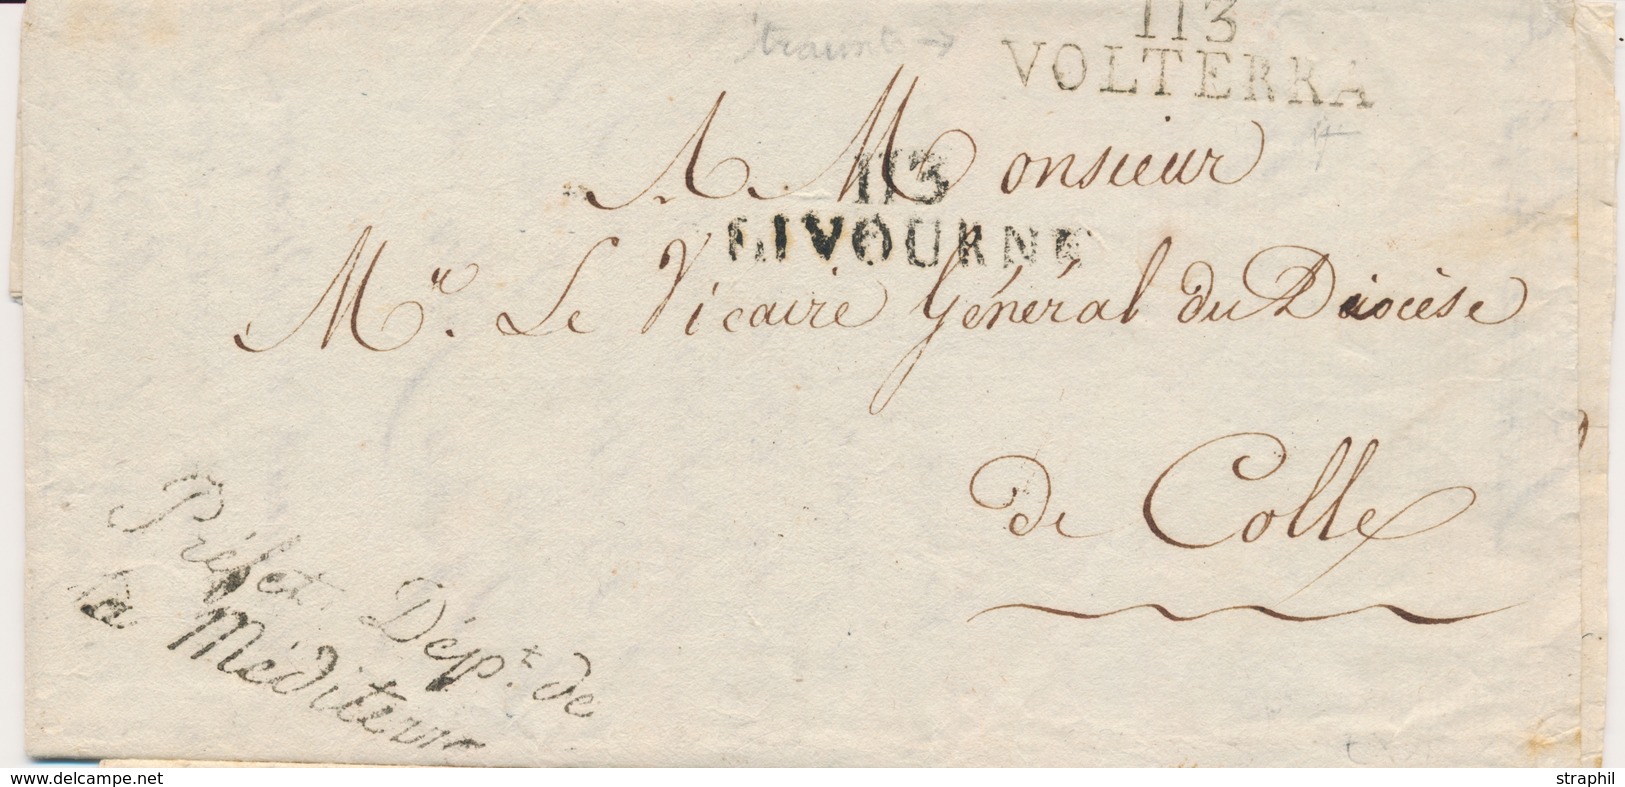 113
VOLTERRA
A Monsieur
113
LIVOURNE
Mr. Le Vicaire Général du Diocèse
de Colle
Préfet Dépt. de
la Méditerr
www.delcampe.net
straphil